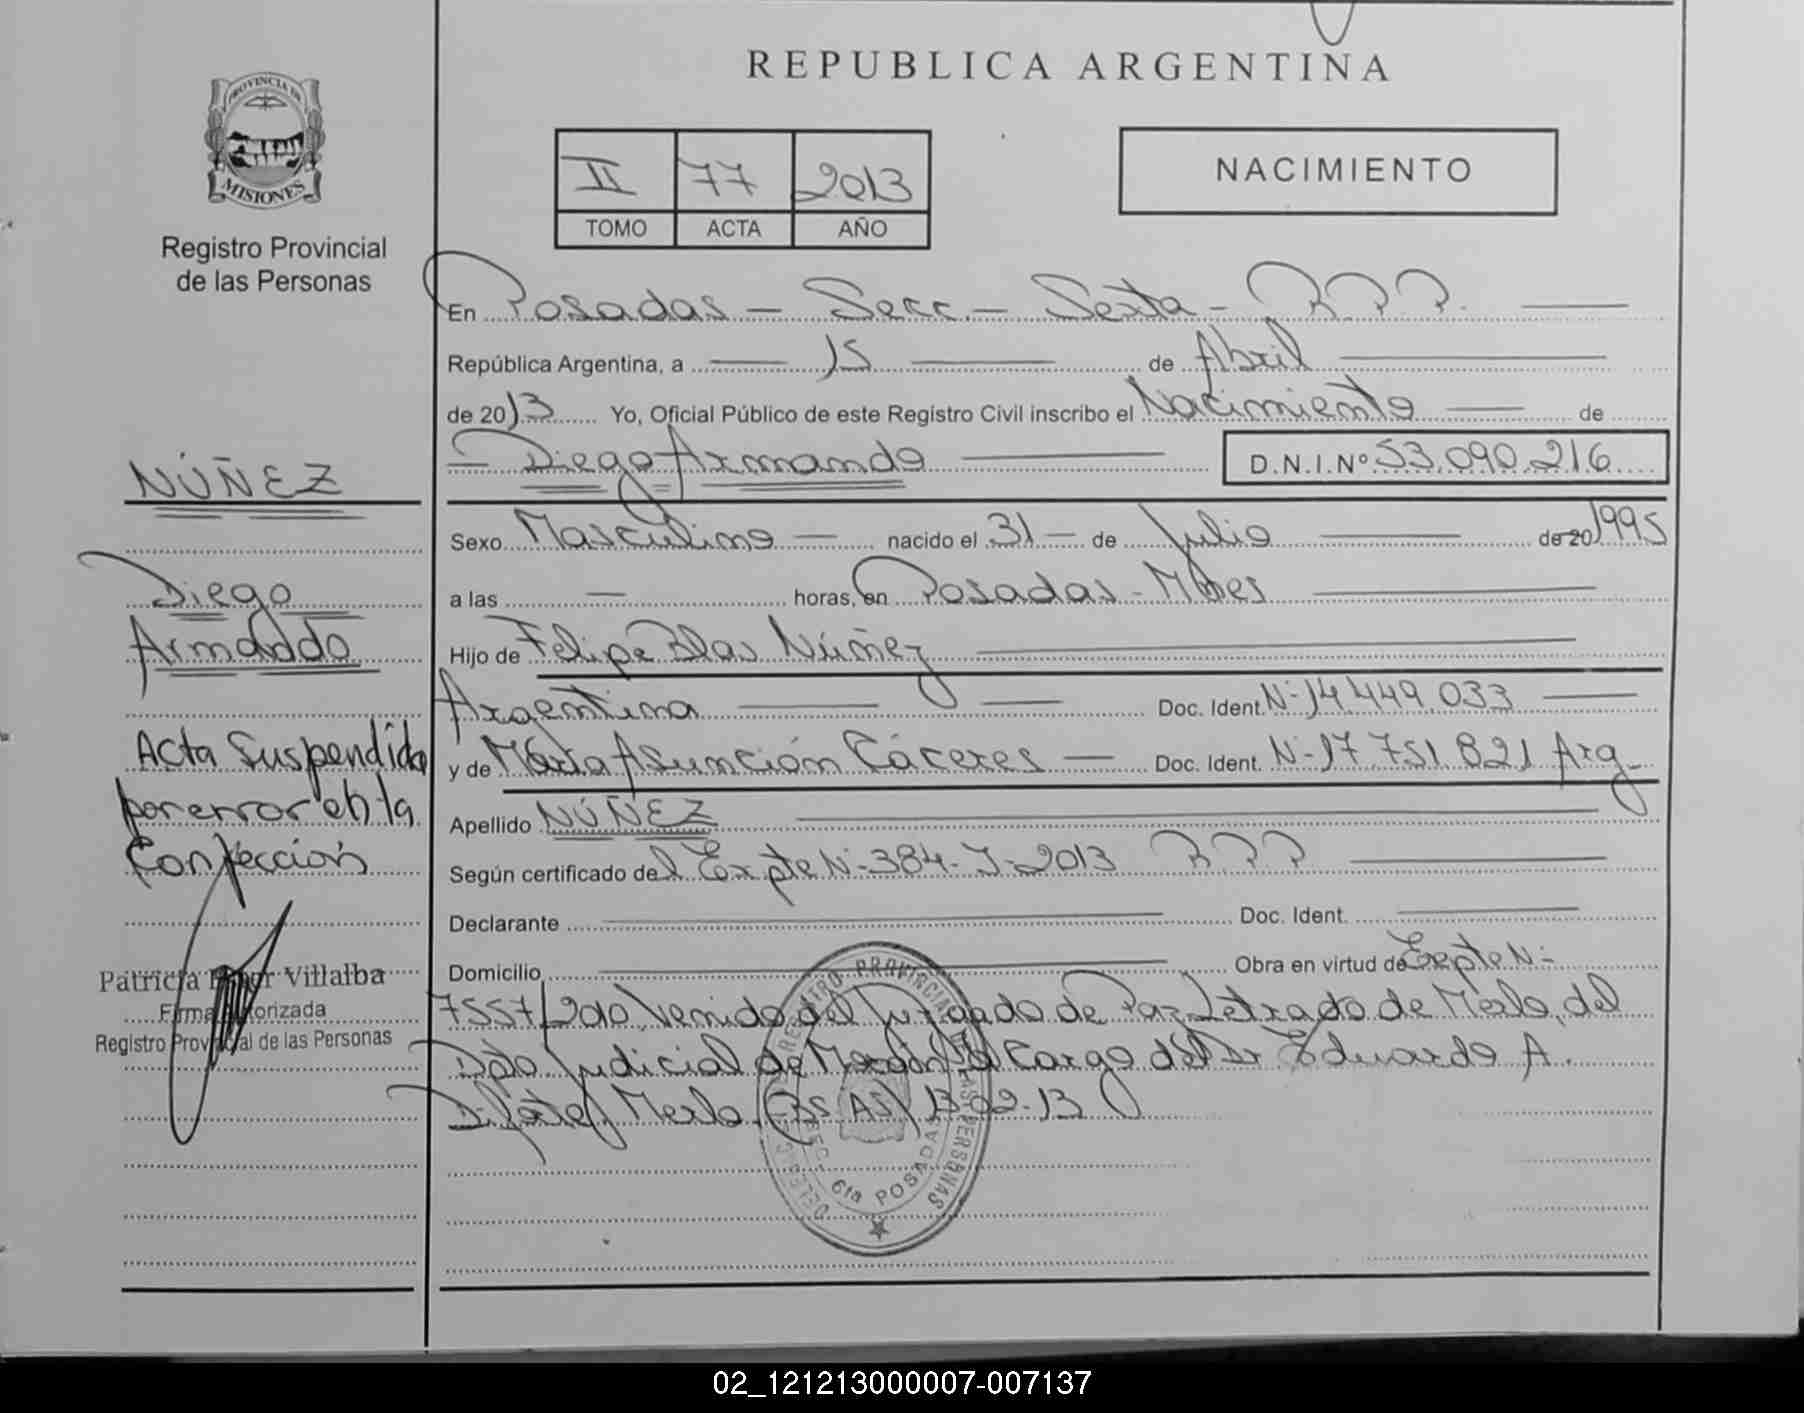 REPUBLICA ARGENTINA
PROVINCIA DE
MISIONES
Registro Provincial
de las Personas
II 77 2013
TOMO ACTA AÑO
NACIMIENTO
En Posadas — Secc. — Sexta — R.P.P. —
República Argentina, a — 15 — de Abril —
de 2013 Yo, Oficial Público de este Registro Civil inscribo el Nacimiento — de
— Diego Armando — D.N.I.Nº 53.090.216
Sexo Masculino — nacido el 31 — de Julio — de 20 1995
a las — horas, en Posadas - Mnes —
Hijo de Felipe Blas Núñez —
Argentina — — Doc. Ident. Nº 14.449.033 —
y de María Asunción Cáceres — Doc. Ident. Nº 17.751.821 Arg
Apellido NÚÑEZ —
Según certificado del Expte Nº 384-J-2013 R.P.P —
Declarante — Doc. Ident. —
Domicilio — Obra en virtud de Expte Nº
7557/2010, Venido del Juzgado de Paz Letrado de Merlo, del
Dpto. Judicial de Morón a Cargo del Dr Eduardo A.
Merlo (BS AS) 13-02-13
NÚÑEZ
Diego
Armando
Acta Suspendida
por error en la
Confección
Patricia Villalba
Firma Autorizada
Registro Provincial de las Personas
REGISTRO PROVINCIAL DE LAS PERSONAS
SECC. 6ta POSADAS
02_121213000007-007137